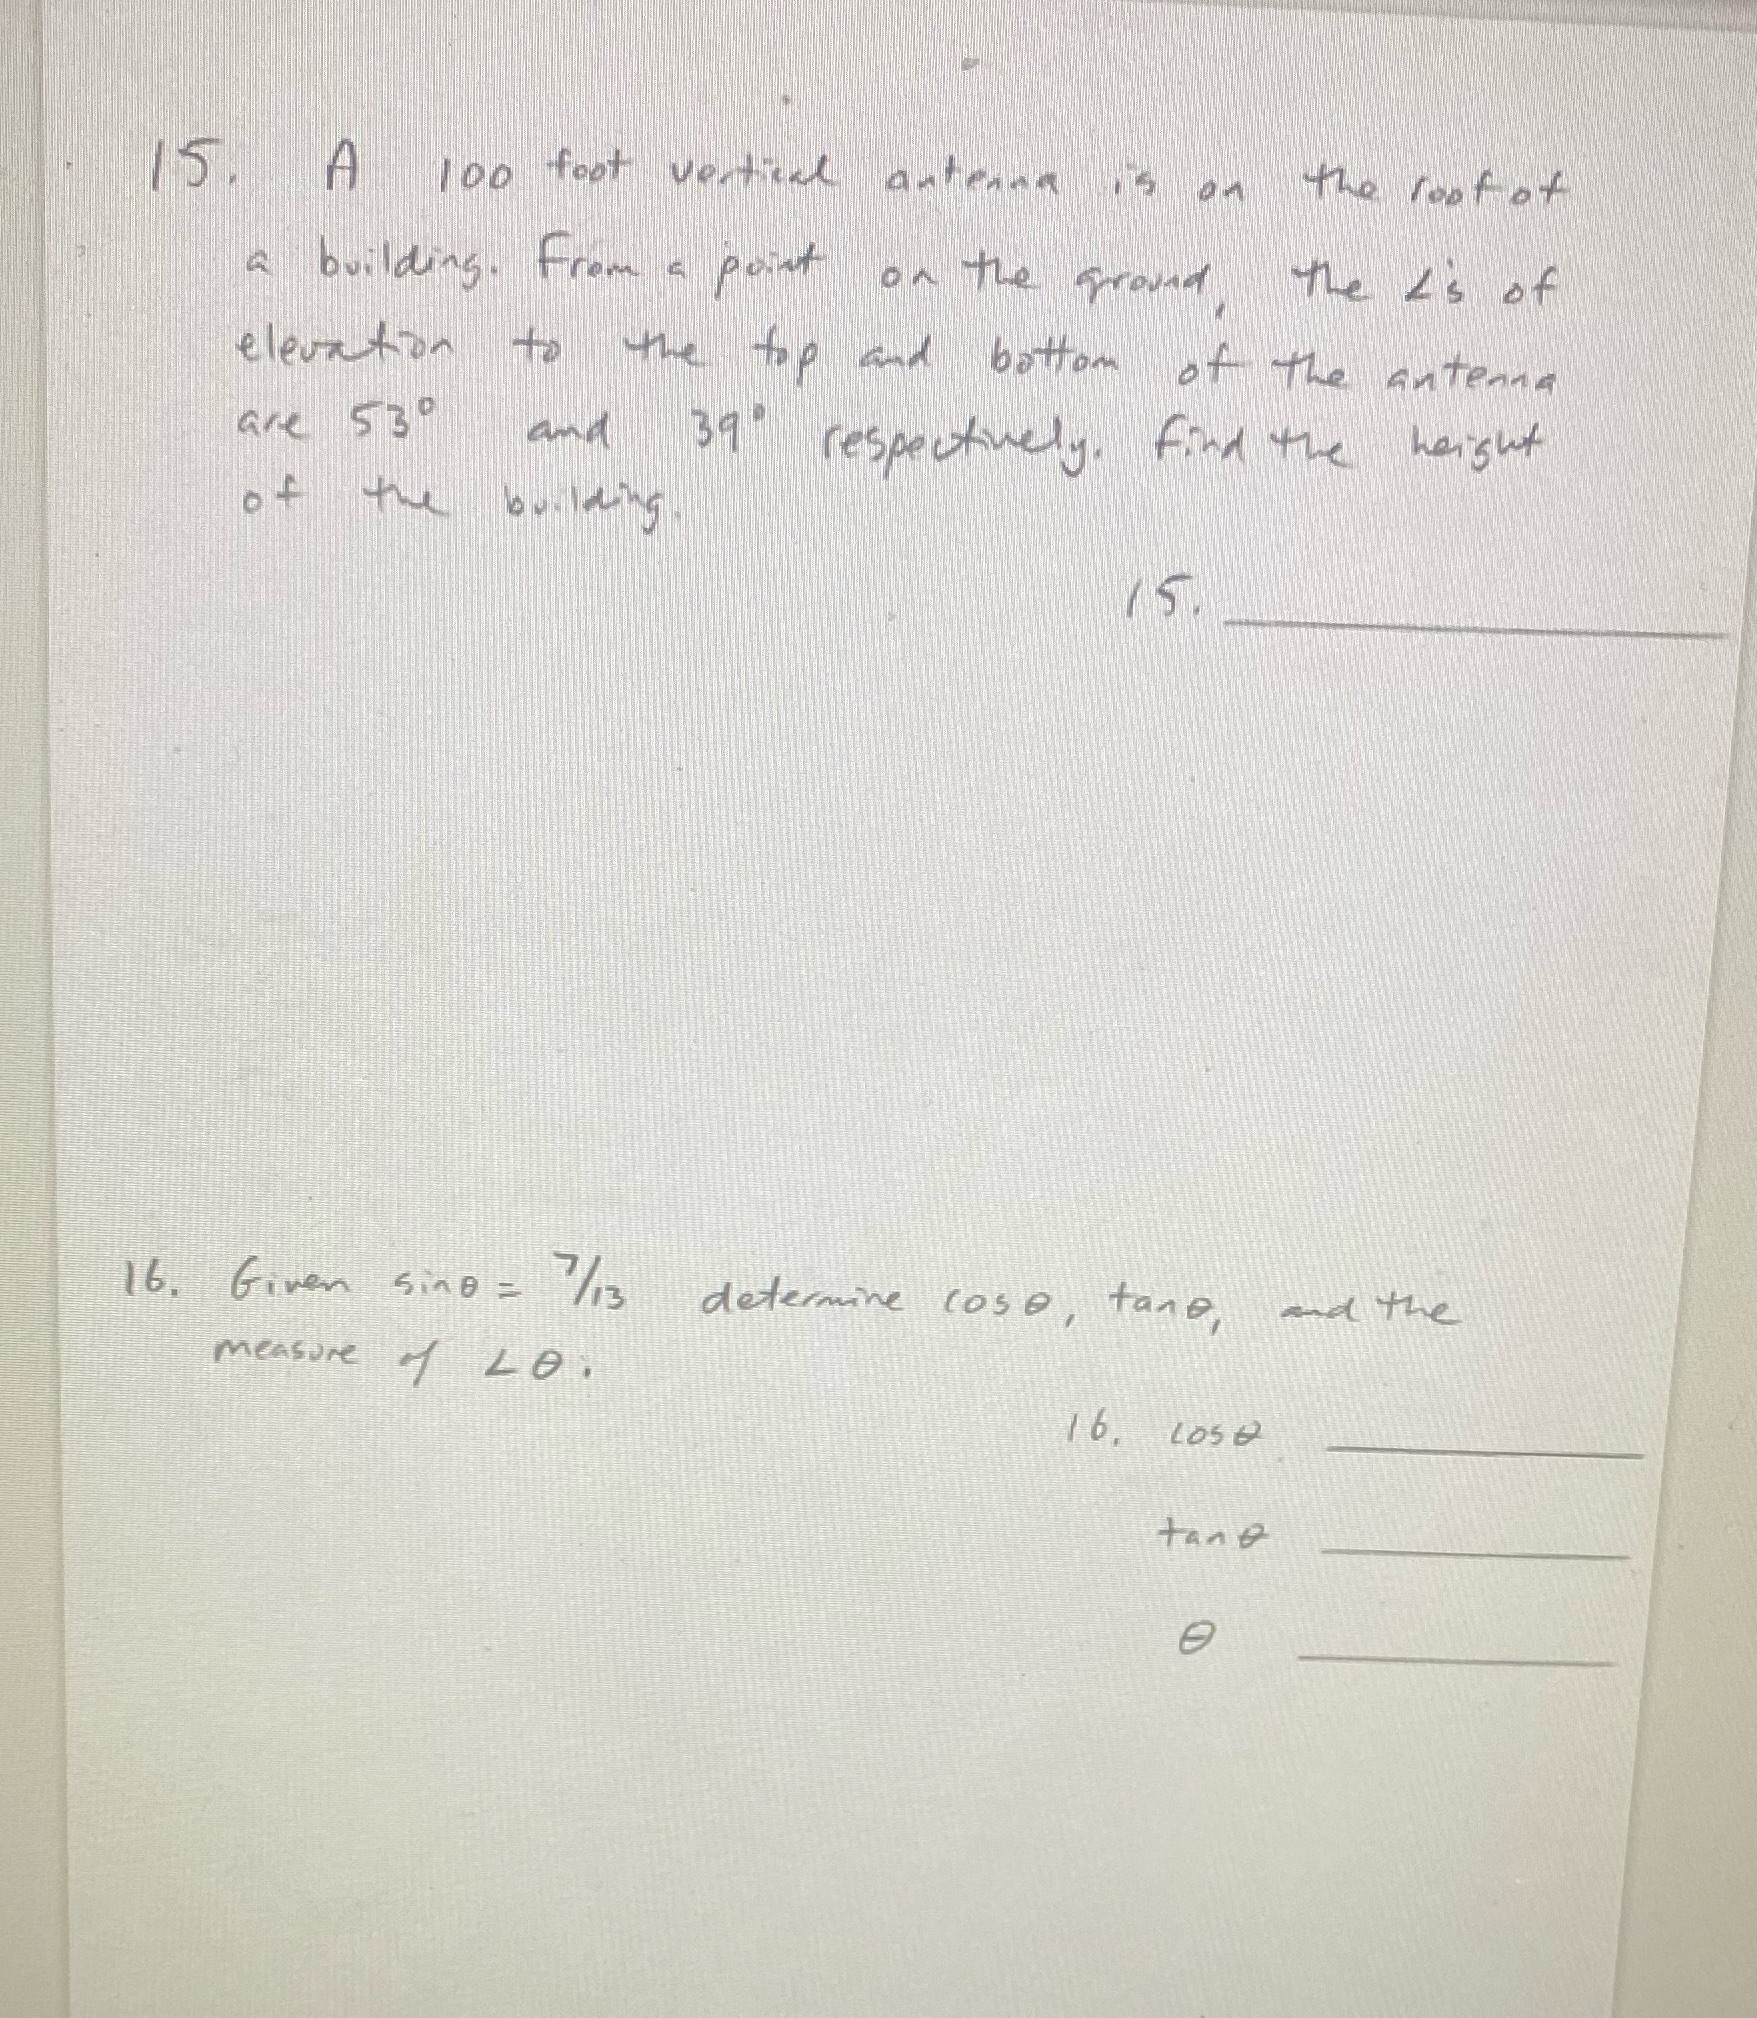 15. A 100 foot vertical antenna is on the roof of
a building. From a point on the ground, the ∠'s of
elevation to the top and bottom of the antenna
are 53° and 39° respectively. Find the height
of the building.
15.
16. Given sinθ = 7/13 determine cosθ, tanθ, and the
measure of ∠θ.
16. cosθ
tanθ
θ